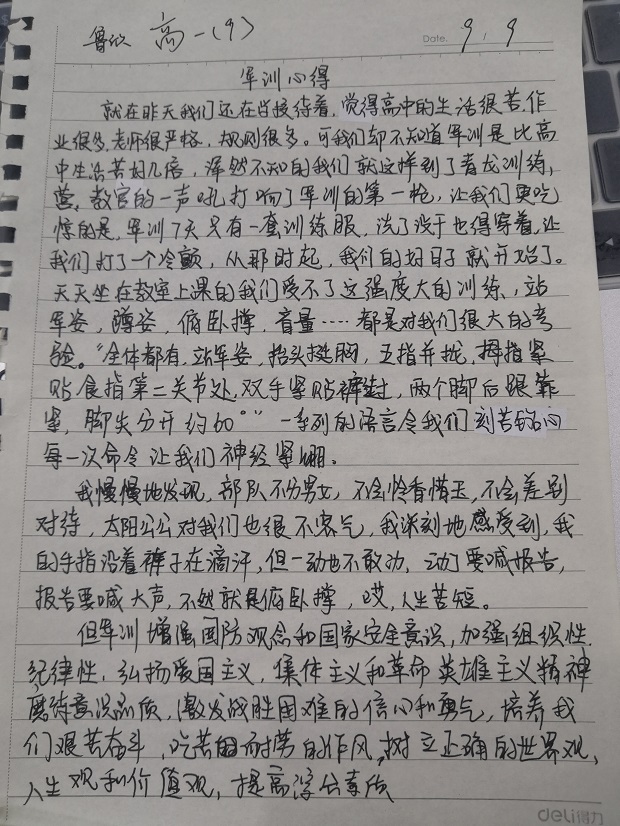 鲁欣 高一(9) Date. 9,9
军训心得
就在昨天我们还在当接待着,觉得高中的生活很苦,作
业很多,老师很严格,规则很多。可我们却不知道军训是比高
中生活苦好几倍,浑然不知的我们就这样到了青龙训练,
营,教官的一声吼打响了军训的第一枪,让我们更吃
惊的是,军训7天只有一套训练服,洗了没干也得穿着,让
我们打了一个冷颤,从那时起,我们的好日子就开始了。
天天坐在教室上课的我们受不了这强度大的训练,站
军姿,蹲姿,俯卧撑,音量……都是对我们很大的考
验。“全体都有,站军姿,抬头挺胸,五指并拢,拇指紧
贴食指第二关节处,双手紧贴裤缝,两个脚后跟靠
紧,脚尖分开约60°”一系列的语言令我们刻苦铭心
每一次命令让我们神经紧绷。
我慢慢地发现,部队不分男女,不会怜香惜玉,不会差别
对待,太阳公公对我们也很不客气,我深刻地感受到,我
的手指沿着裤子在滴汗,但一动也不敢动,动了要喊报告,
报告要喊大声,不然就是俯卧撑,哎,人生苦短。
但军训增强国防观念和国家安全意识,加强组织性
纪律性,弘扬爱国主义,集体主义和革命英雄主义精神
磨意识品质,激发战胜困难的信心和勇气,培养我
们艰苦奋斗,吃苦耐劳的作风,树立正确的世界观,
人生观和价值观,提高素质
deli得力